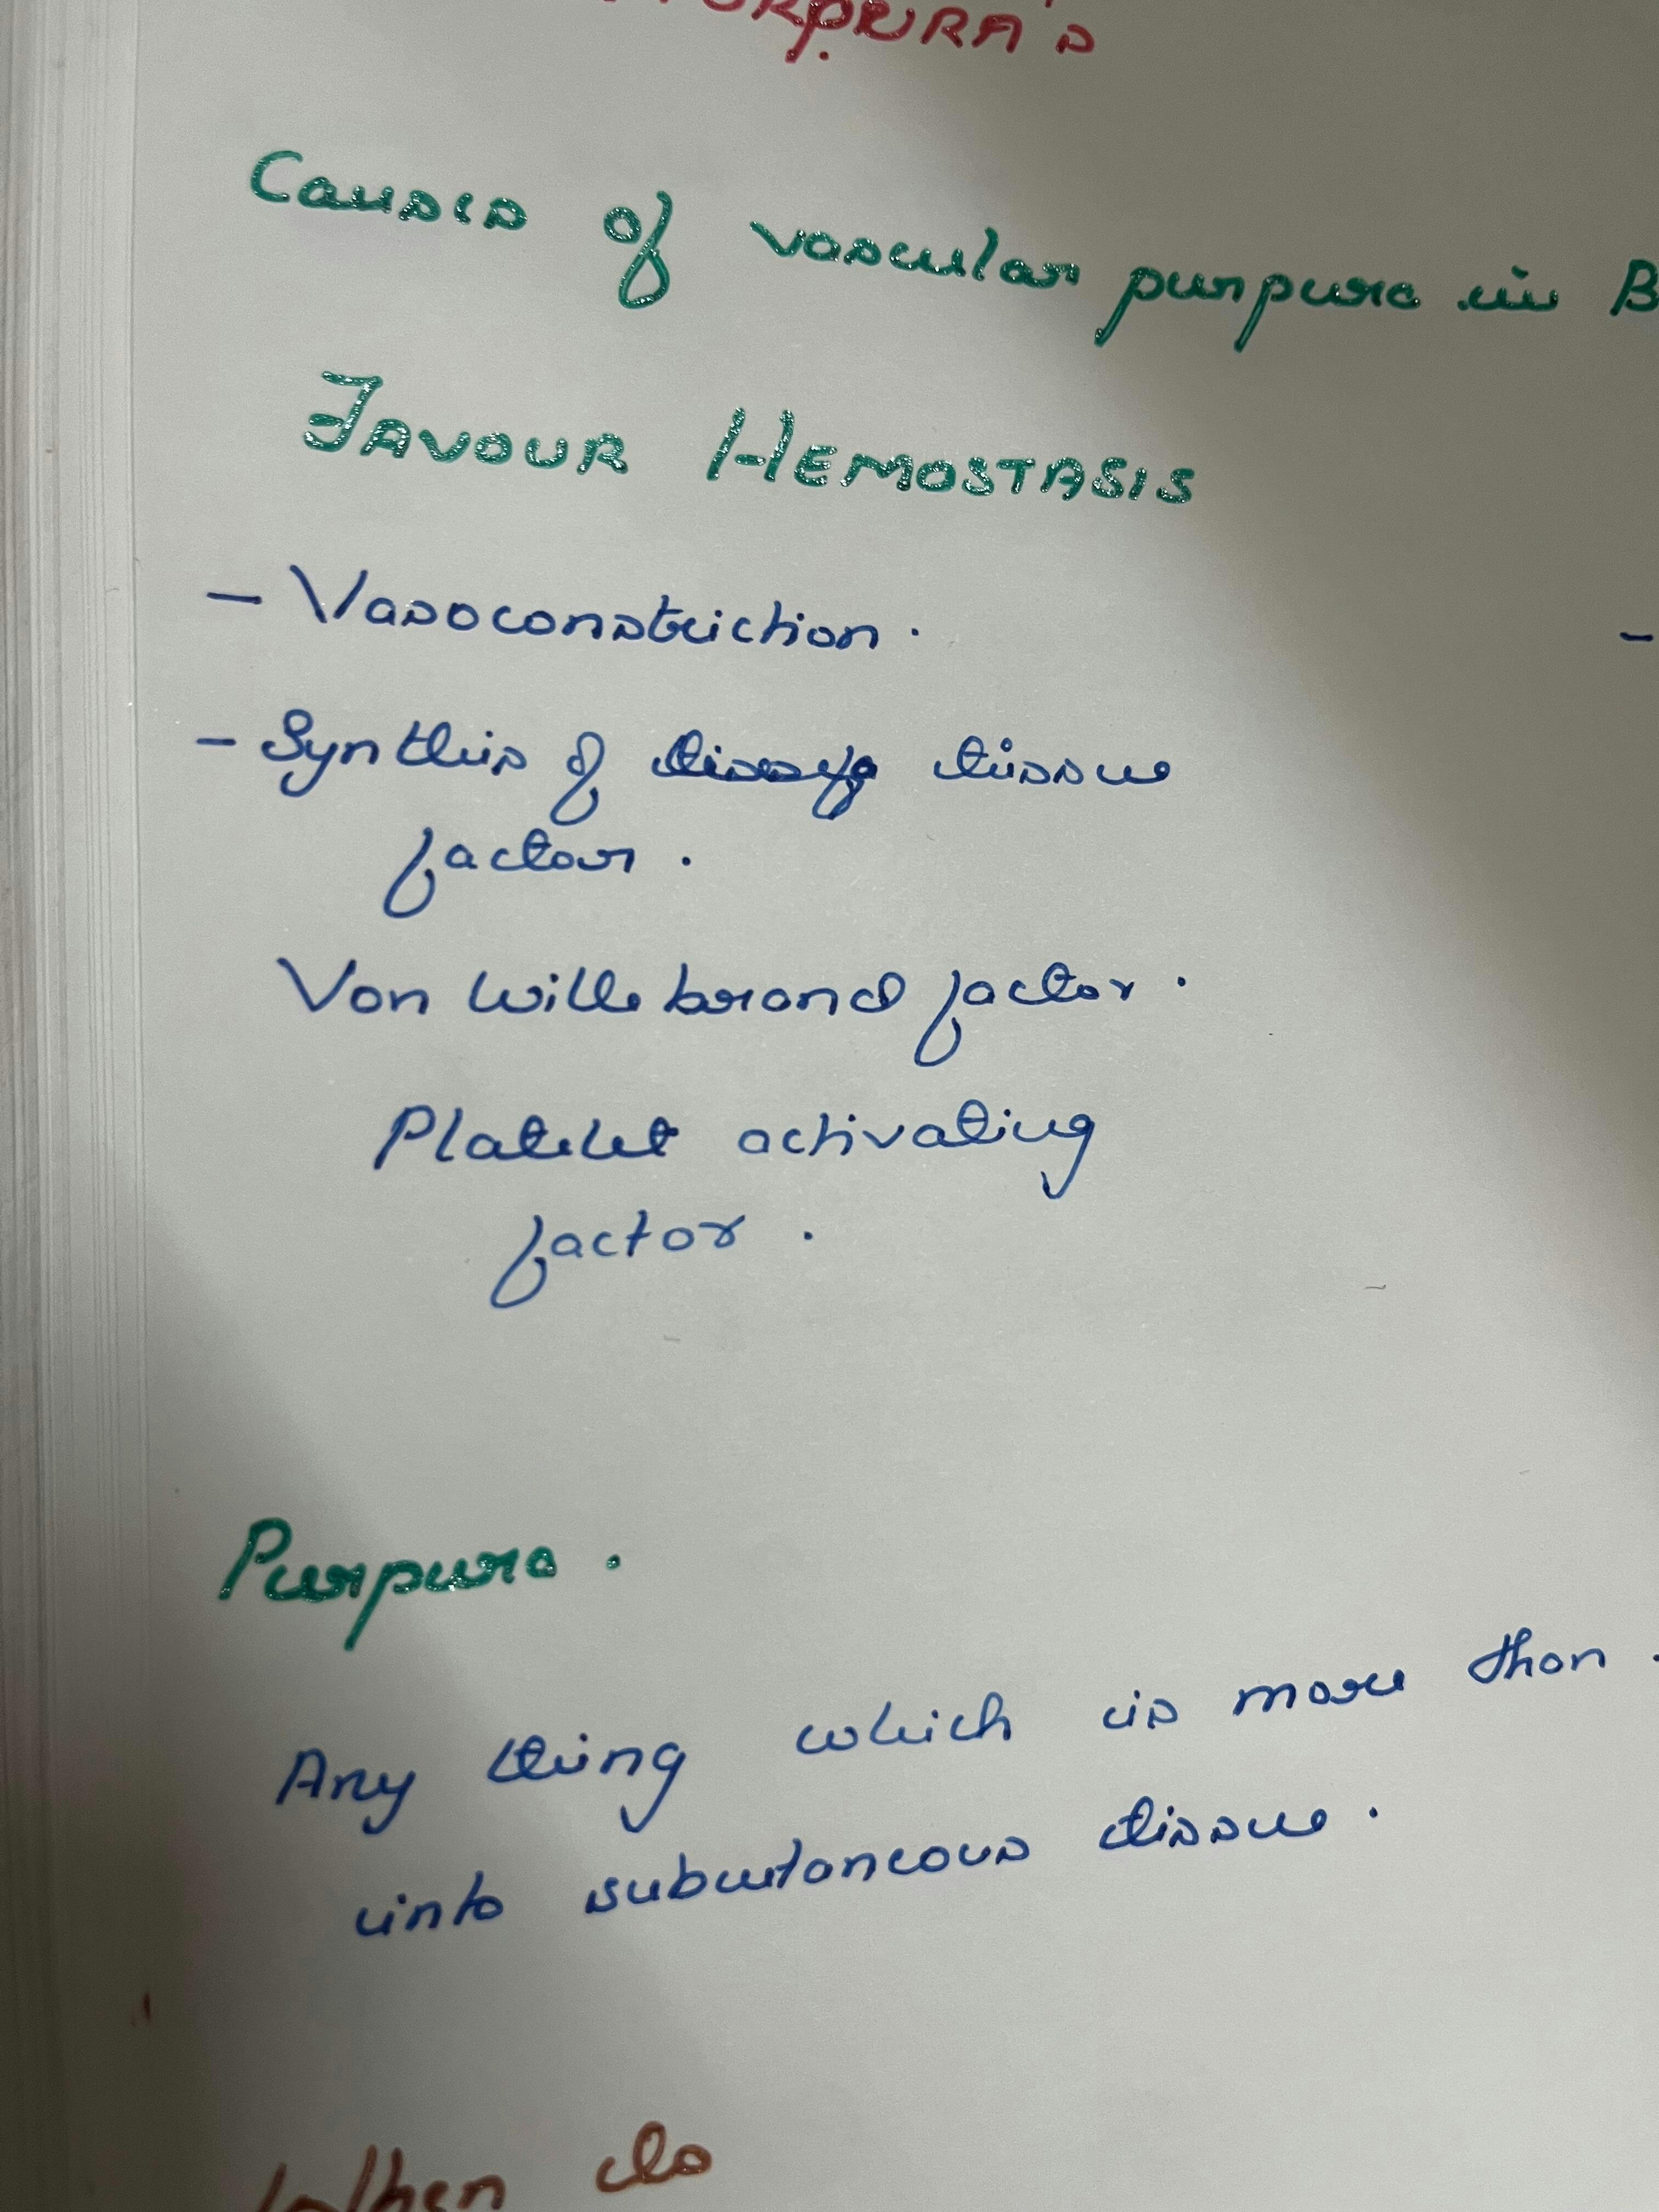 PURPURA's
Causes of vascular purpura in B
FAVOUR HEMOSTASIS
- Vasoconstriction.
-
- Synthis of tissue
factor.
Von Wille brand factor.
Platelet activating
factor.
Purpura.
Any thing which is more than
into subcutaneous tissue.
When do